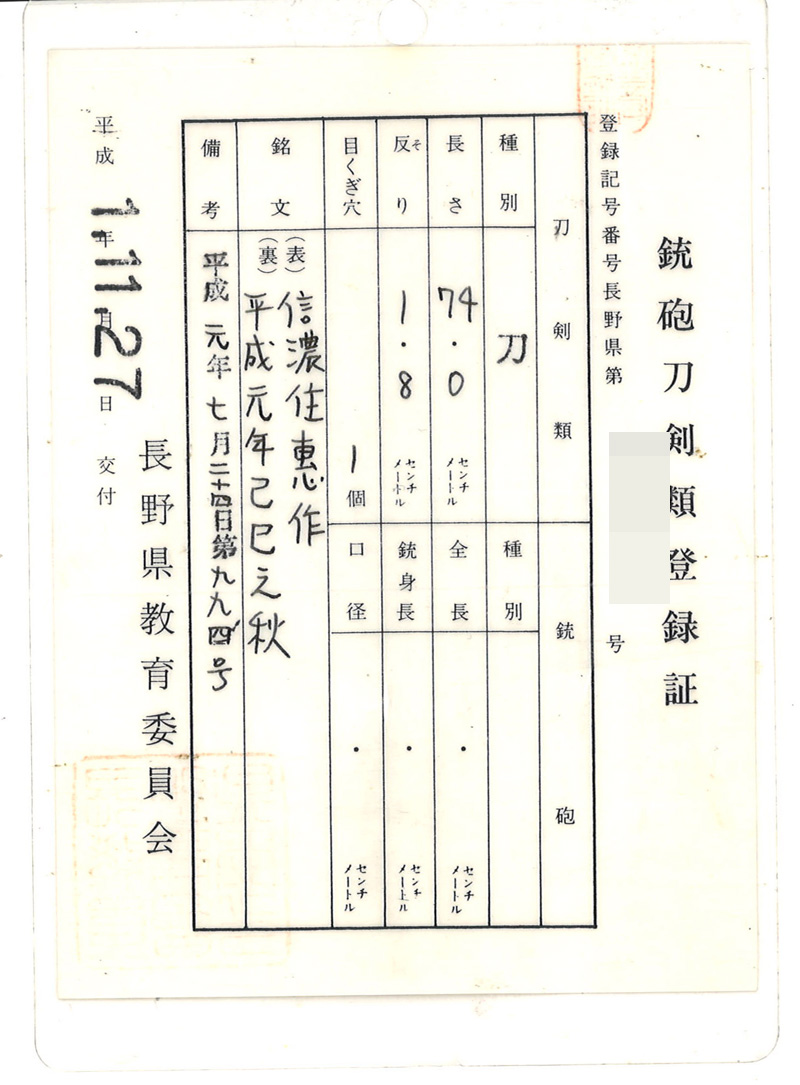 銃砲刀剣類登録証
登録記号番号長野県第
号
刀剣類
銃砲
種別
刀
種別
長さ
74.0
センチメートル
全長
・
センチメートル
反り
そ
1.8
センチメートル
銃身長
・
センチメートル
目くぎ穴
1
個
口径
・
センチメートル
銘文
(表)
信濃住惠作
(裏)
平成元年己巳之秋
備考
平成元年七月二十四日第九九四号
長野県教育委員会
平成1年11月27日交付